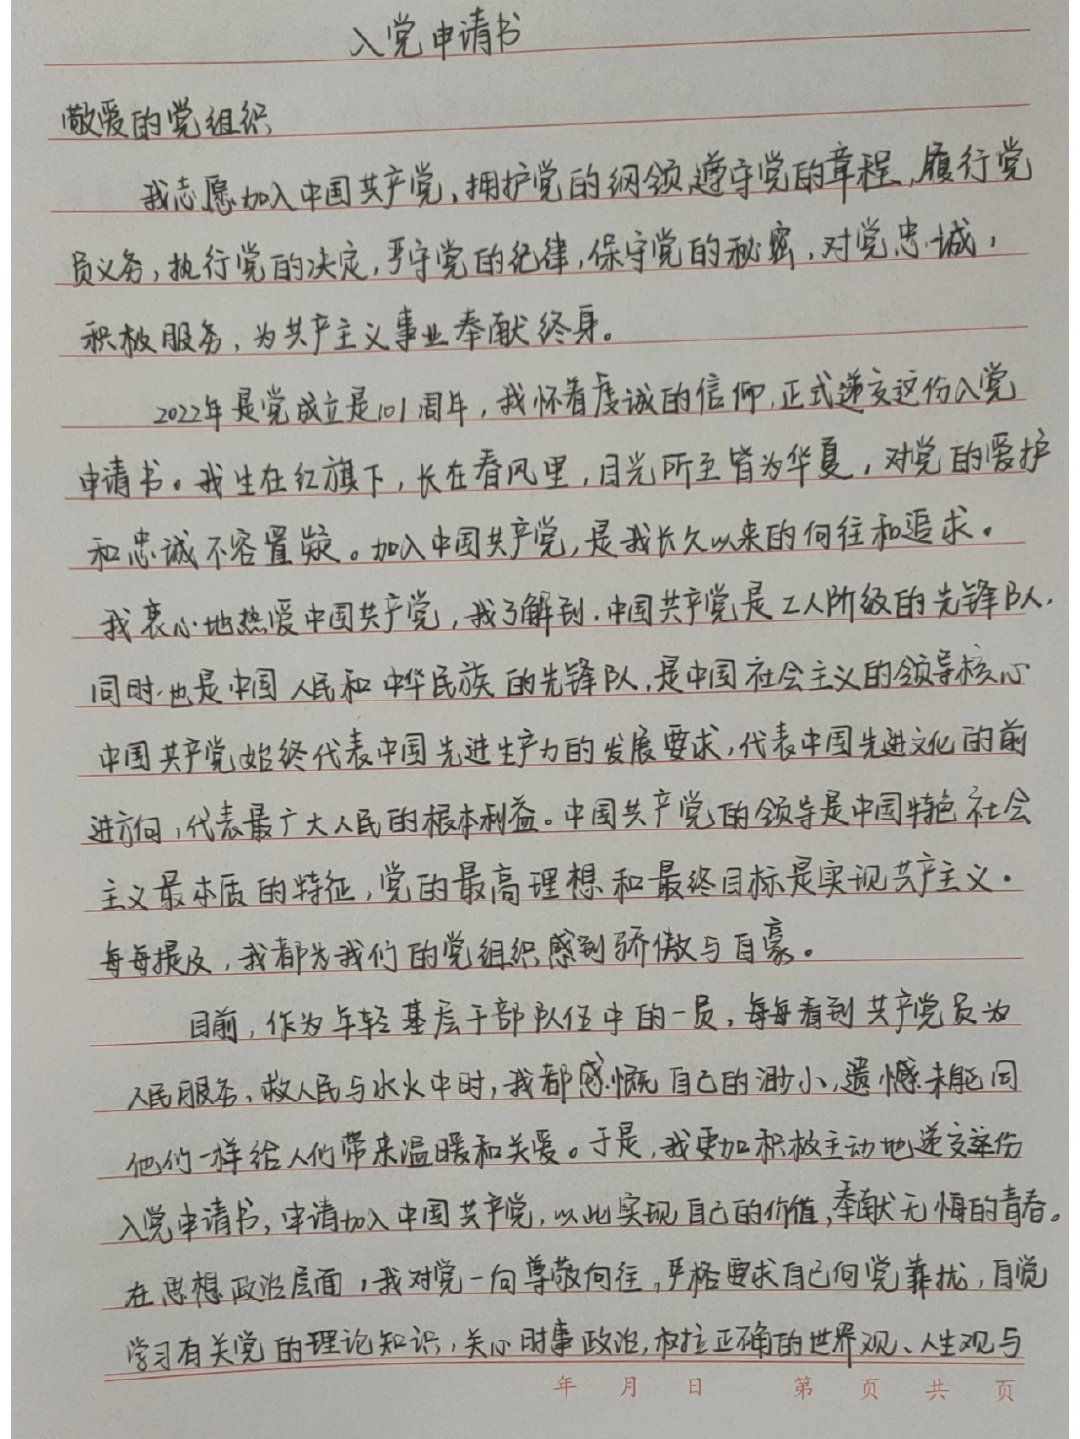 入党申请书
敬爱的党组织
我志愿加入中国共产党，拥护党的纲领，遵守党的章程，履行党
员义务，执行党的决定，严守党的纪律，保守党的秘密，对党忠诚，
积极服务，为共产主义事业奉献终身。
2022年是党成立是101周年，我怀着虔诚的信仰，正式递交这份入党
申请书。我生在红旗下，长在春风里，目光所至皆为华夏，对党的爱护
和忠诚不容置疑。加入中国共产党，是我长久以来的向往和追求。
我衷心地热爱中国共产党，我了解到，中国共产党是工人阶级的先锋队，
同时也是中国人民和中华民族的先锋队，是中国社会主义的领导核心
中国共产党始终代表中国先进生产力的发展要求，代表中国先进文化的前
进方向，代表最广大人民的根本利益。中国共产党的领导是中国特色社会
主义最本质的特征，党的最高理想和最终目标是实现共产主义。
每每提及，我都为我们的党组织感到骄傲与自豪。
目前，作为年轻基层干部队伍中的一员，每每看到共产党员为
人民服务、救人民与水火中时，我都感慨自己的渺小，遗憾未能同
他们一样给人们带来温暖和关爱。于是，我更加积极主动地递交这份
入党申请书，申请加入中国共产党，以此实现自己的价值，奉献无悔的青春。
在思想政治层面，我对党一向尊敬向往，严格要求自己向党靠拢，自觉
学习有关党的理论知识，关心时事政治，树立正确的世界观、人生观与
年 月 日 第 页 共 页